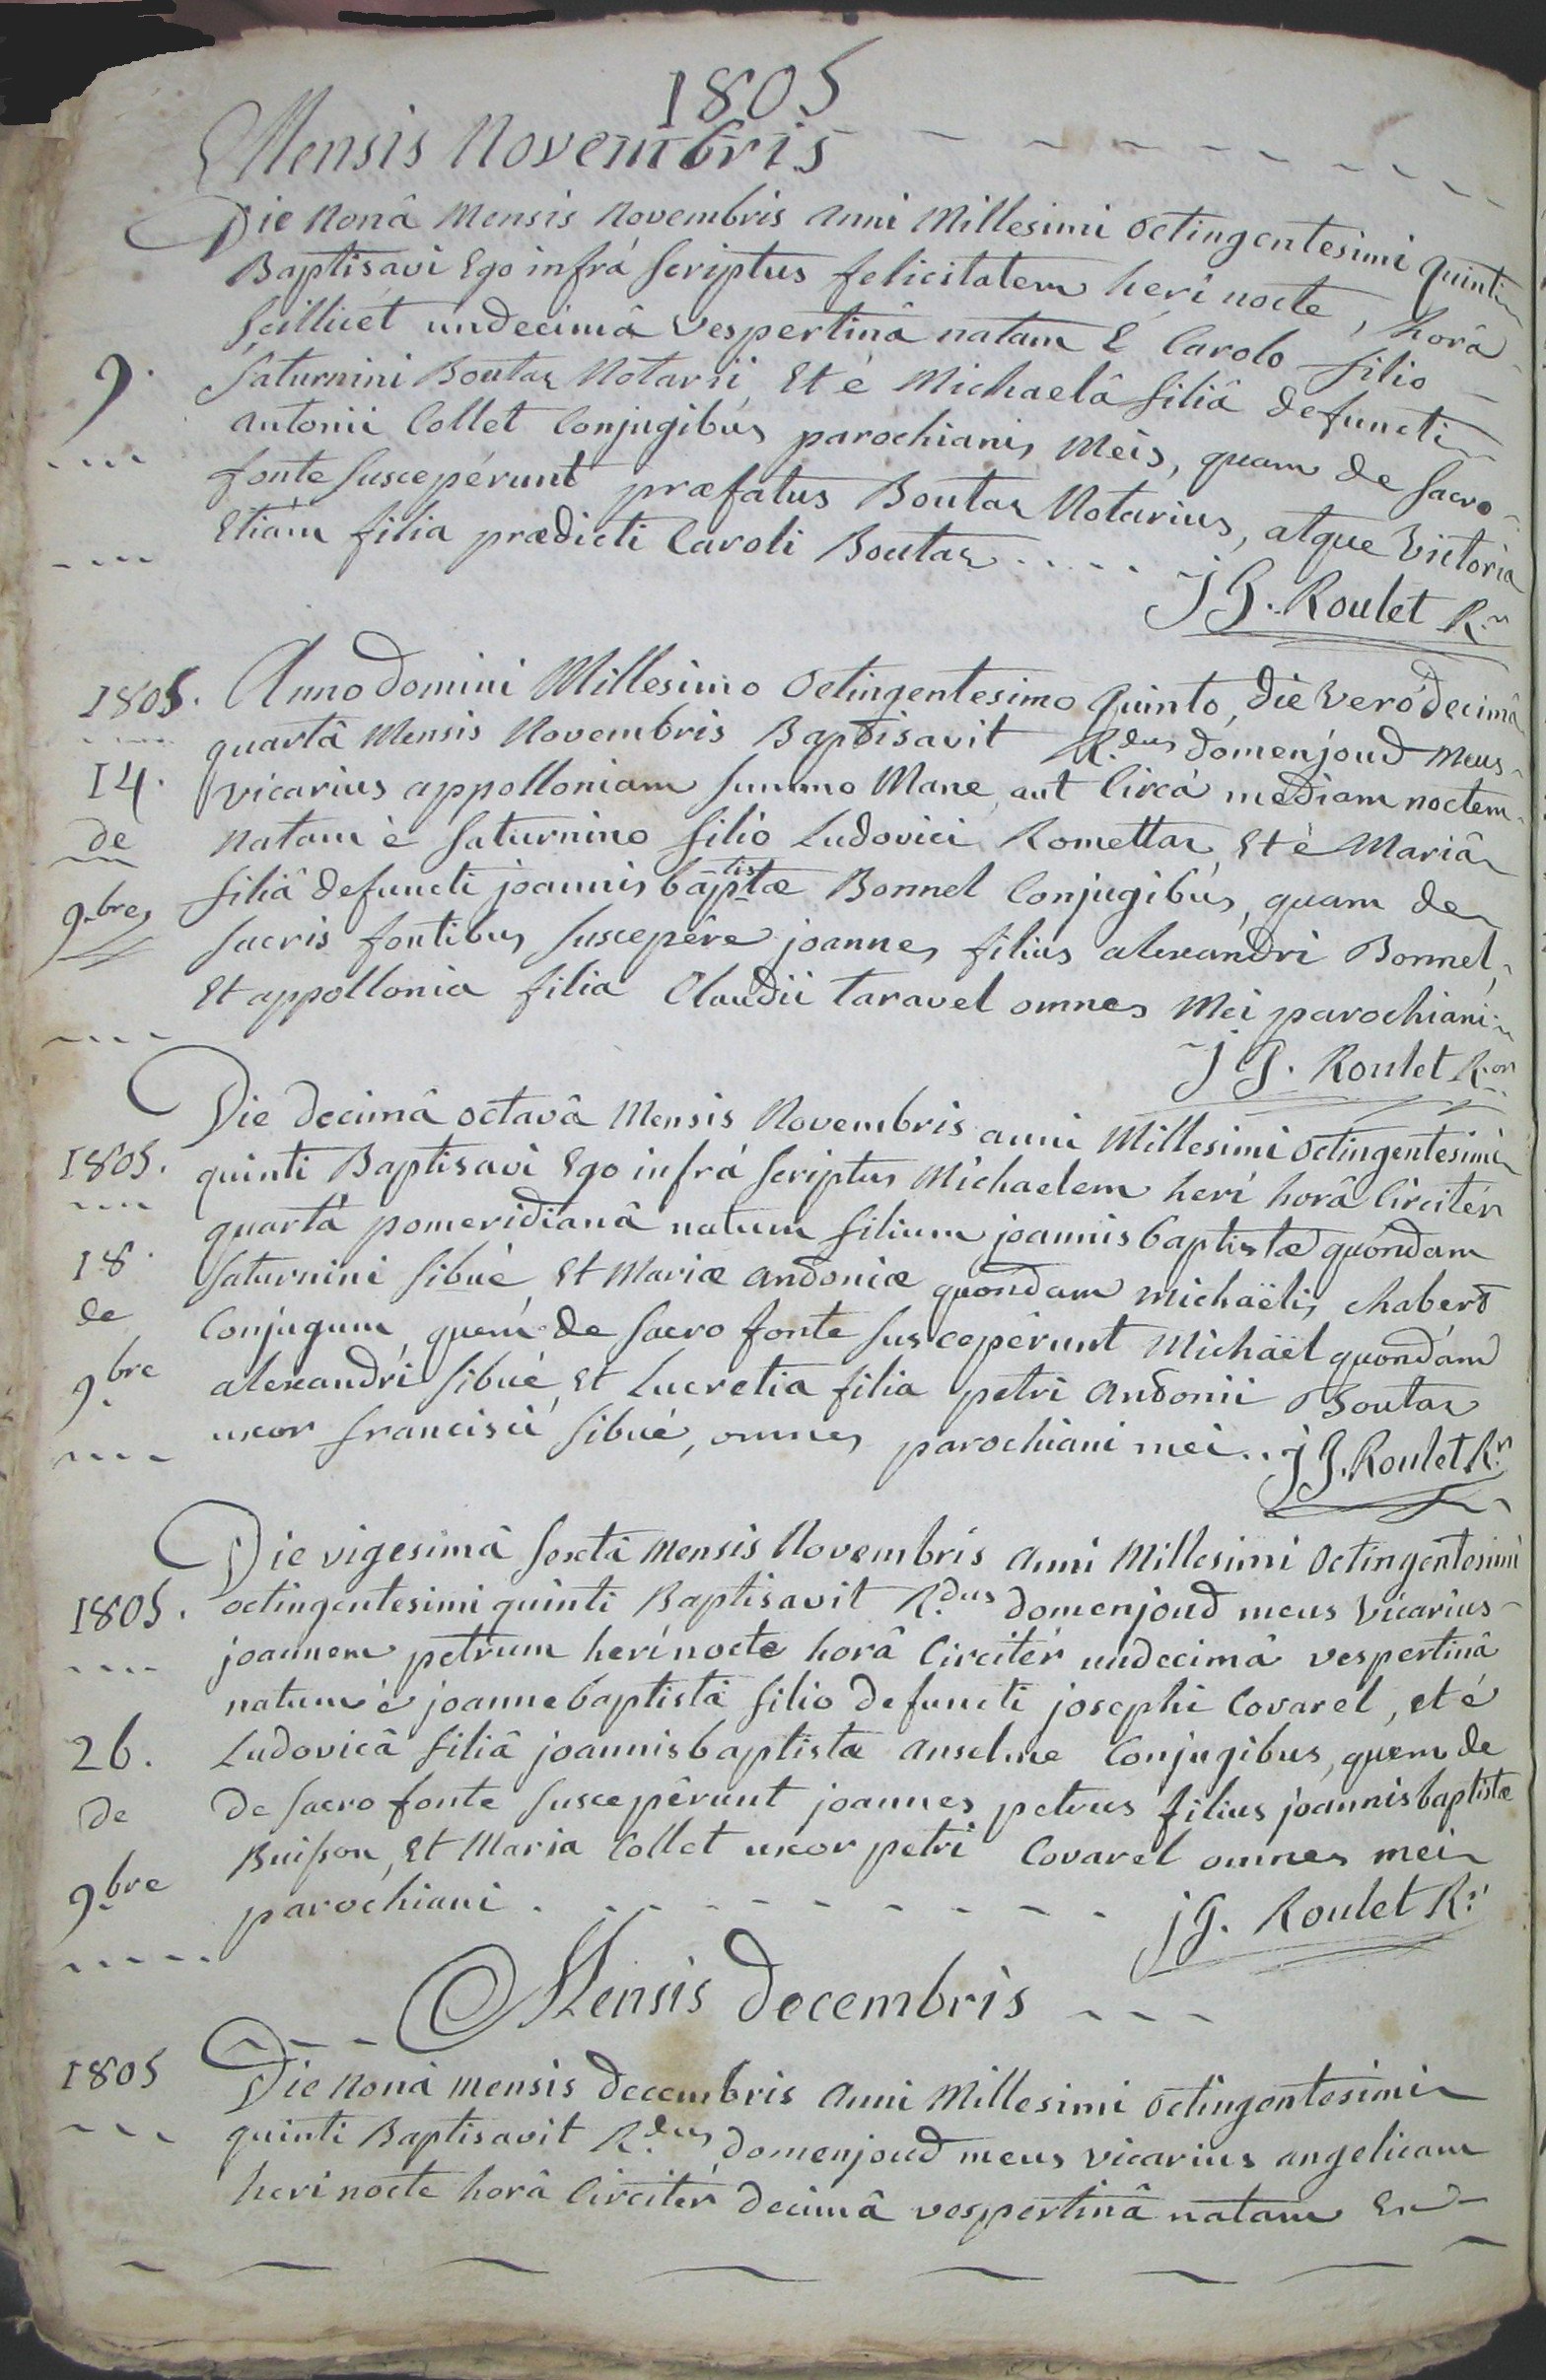 1805
Mensis Novembris
Die Nonâ Mensis Novembris Anni Millesimi Octingentesimi quinti
Baptisavi Ego infrá scriptus felicitatem heri nocte, horâ
scillicet undecimâ vespertinâ natam è Carolo filio
9. saturnini Boutaz Notarii, Et è Michaelâ filiâ defuncti
antonii Collet Conjugibus parochianis Meis, quam de sacro
fonte suscepérunt præfatus Boutaz Notarius, atque Victoria
Etiàm filia prædicti Caroli Boutaz.....
JG. Roulet Rr
1805. Anno domini Millesimo Octingentesimo quinto, die veró decimâ
quartâ Mensis Novembris Baptisavit R.dus domenjoud meus
14. vicarius appolloniam summo Mane, aut Circá mediam noctem
de natam è saturnino filio Ludovici Romettaz, Et è Mariâ
9.bres filiâ defuncti joannis baptistæ Bonnel Conjugibus, quam de
sacris fontibus suscepêre joannes filius alexandri Bonnel,
Et appollonia filia Claudii taravel omnes Mei parochiani
JG. Roulet R.or
Die decimâ octavâ Mensis Novembris anni Millesimi octingentesimi
1805. quinti Baptisavi Ego infrá scriptus Michaelem heri horâ Circitér
quartâ pomeridianâ natum filium joannis baptistæ quóndam
18. saturnini sibué, Et Mariæ andoniæ quondam michaëlis chabert
de Conjugum, quem de sacro fonte suscepêrunt Michaël quondám
9.bre alexandri sibué, Et Lucretia filia petri andonii Boutaz
uxor francisci sibué, omnes parochiani mei.. JG. Roulet Rr
Die vigesimâ sextâ Mensis Novembris anni Millesimi Octingentesimi
1805. octingentesimi quinti Baptisavit R.dus domenjoud meus vicarius
joannem petrum heri nocte horâ Circitér undecimâ vespertinâ
natum è joanne baptistâ filio defuncti josephi Covarel, et é
26. Ludovicâ filiâ joannis baptistæ anselme Conjugibus, quem de
de de sacro fonte suscepêrunt joannes petrus filius joannis baptistæ
Buisson, Et Maria Collet uxor petri Covarel omnes mei
9.bre parochiani
JG. Roulet R.r
Mensis decembris
1805 Die Nonâ mensis decembris anni Millesimi octingentesimi
quinti Baptisavit R.dus domenjoud meus vicarius angelicam
heri nocte horâ Circitér decimâ vespertinâ natam Ex